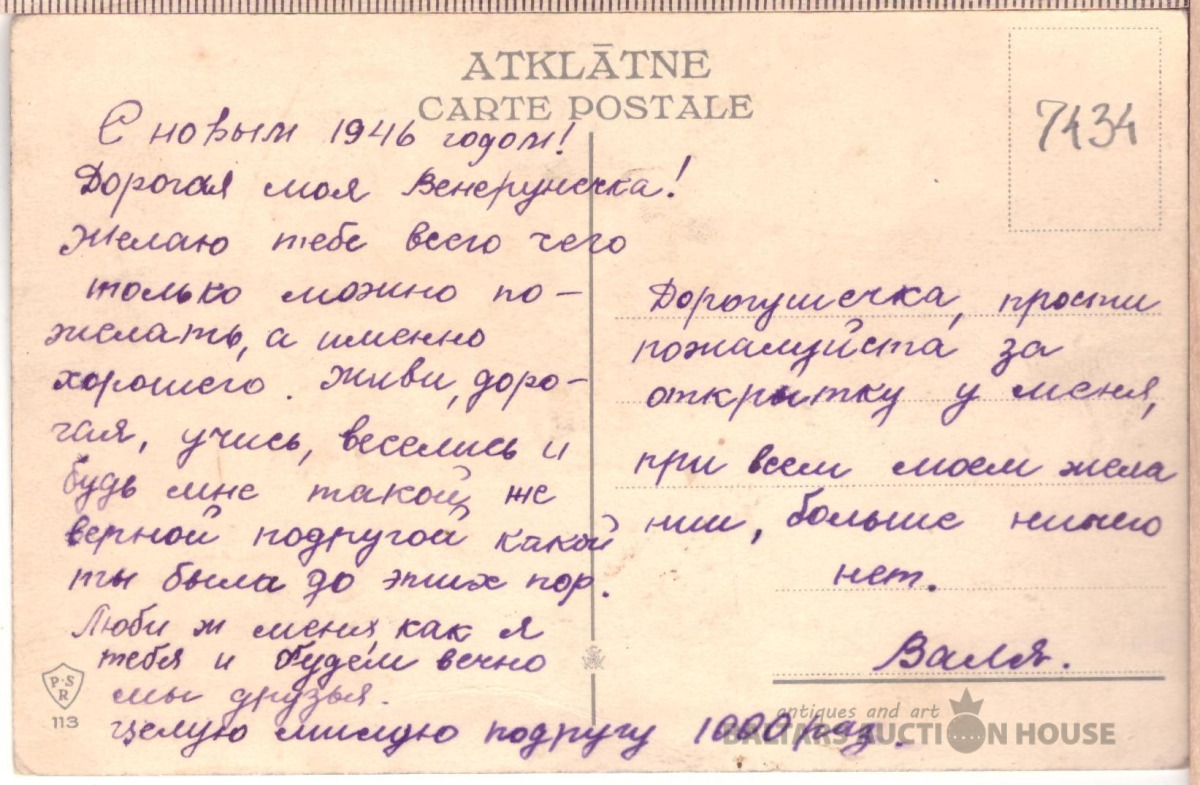 ATKLĀTNE
CARTE POSTALE
7434
С новым 1946 годом!
Дорогая моя Венерунечка!
Желаю тебе всего чего
только можно по-
желать, а именно
хорошего. Живи, доро-
гая, учись, веселись и
будь мне такой же
верной подругой какой
ты была до этих пор.
Люби ж меня, как я
тебя и будем вечно
мы друзья.
Целую милую подругу 1000 раз.
Дорогушечка, прости
пожалуйста за
открытку у меня,
при всем моем жела
нии, больше ничего
нет.
Валя.
P·S
R
113
antiques and art
BALTARS AUCTION HOUSE